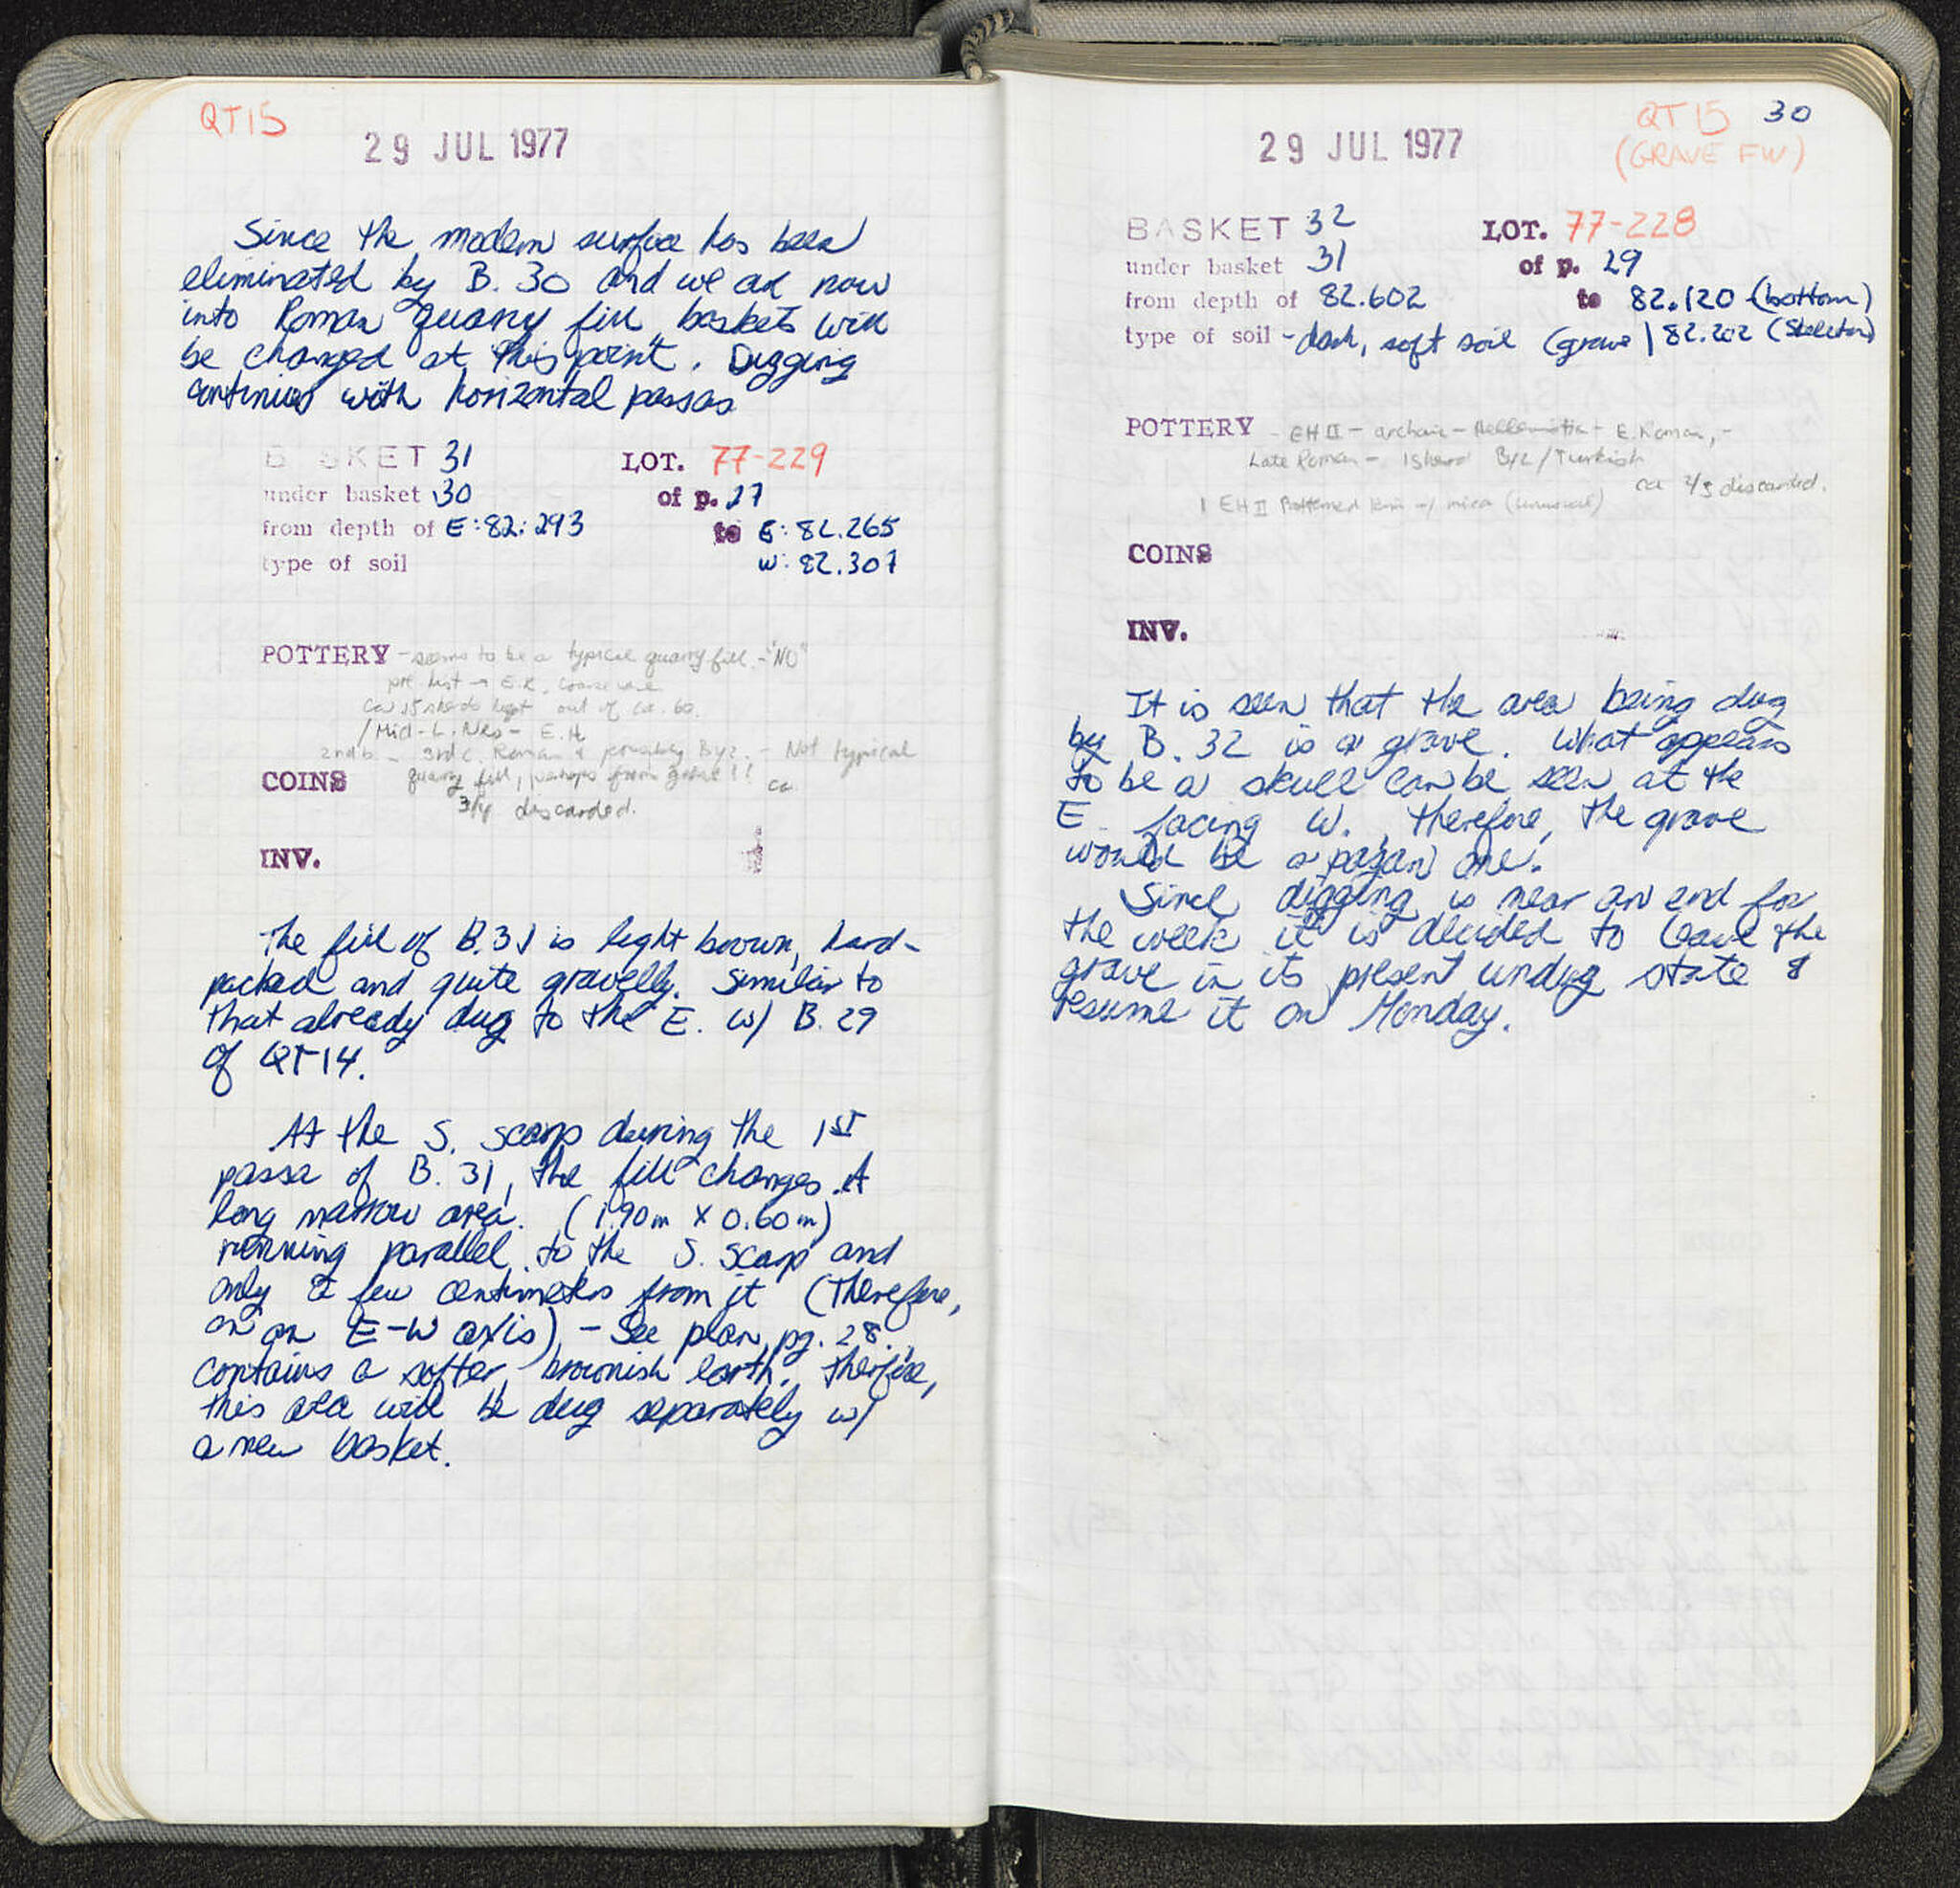 QT15
29 JUL 1977
Since the modern surface has been
eliminated by B. 30 and we are now
into Roman quarry fill baskets will
be changed at this point. Digging
continues with horizontal passas
B SKET 31 LOT. 77-229
under basket 30 of p. 27
from depth of E: 82.293 to E: 82.265
type of soil W: 82.307
POTTERY - seems to be a typical quarry fill. - "NO"
pre hist → E.R. coarse ware
ca 15 sherds kept out of ca. 60.
/Mid-L. Neo - E.H.
3rd c. Roman & possibly Byz. - Not typical
COINS quarry fill, perhaps from grave!! ca
discarded.
INV.
The fill of B.31 is light brown, hard-
packed and quite gravelly. Similar to
that already dug to the E. w/ B. 29
of QT14.
At the S. scarp during the 1st
passa of B. 31, the fill changes. A
long narrow area. (1.90m X 0.60m)
running parallel to the S. scarp and
only a few centimeters from it (Therefore,
on an E-W axis) - See plan, pg. 28.
contains a softer, brownish earth. Therfore,
this area will be dug separately w/
a new basket.
QT 15 30
29 JUL 1977 (GRAVE FW)
BASKET 32 LOT. 77-228
under basket 31 of p. 29
from depth of 82.602 to 82.120 (bottom)
type of soil - dark, soft soil (grave) 82.202 (Skeleton)
POTTERY - EH II - archaic - Hellenistic - E. Roman, -
Late Roman - 1 sherd Byz/Turkish
ca 2/5 discarded.
1 EH II w/ mica (unusual)
COINS
INV.
It is seen that the area being dug
by B. 32 is a grave. What appears
to be a skull can be seen at the
E facing W., therefore, the grave
would be a pagan one.
Since digging is near an end for
the week it is decided to leave the
grave in its present undug state &
resume it on Monday.